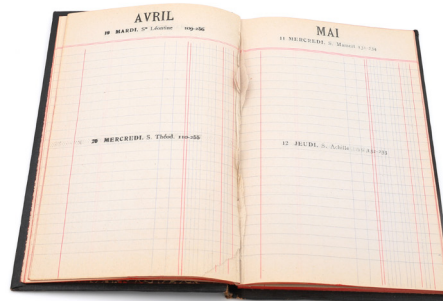 AVRIL
19 MARDI. Sᵗᵉ Léontine 109-256
20 MERCREDI. S. Théod. 110-255
MAI
11 MERCREDI. S. Mamert 131-234
12 JEUDI. S. Achille 132-233